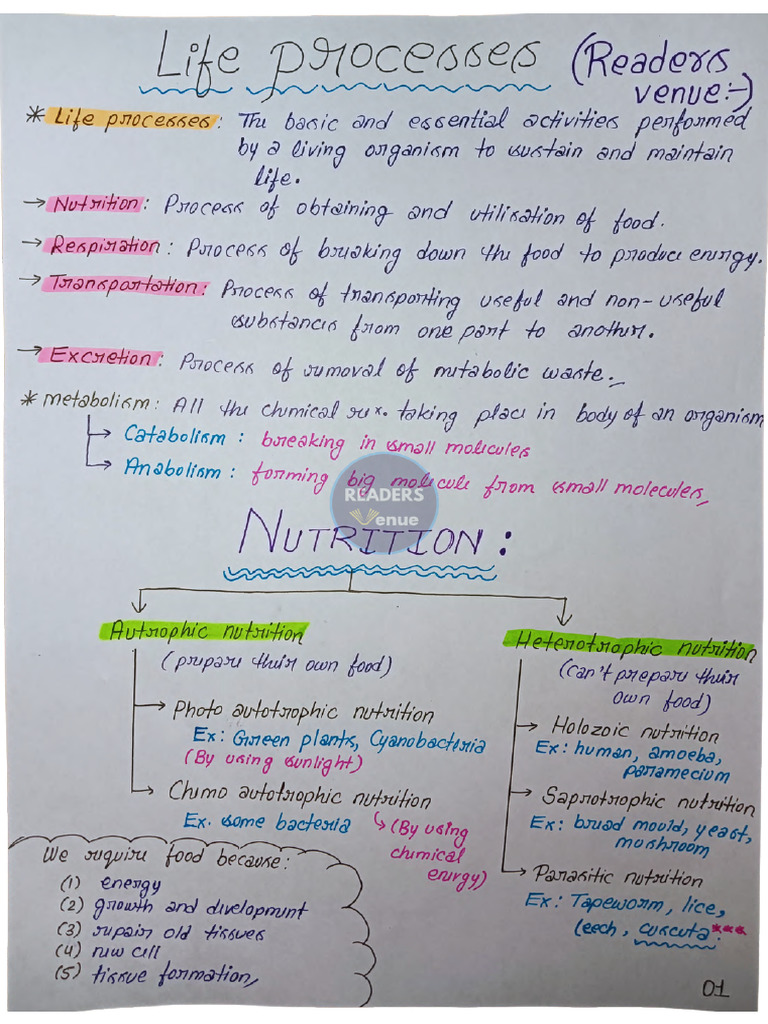 Life processes (Readers
venue:-)
* Life processes: The basic and essential activities performed
by a living organism to sustain and maintain
life.
→ Nutrition: Process of obtaining and utilisation of food.
→ Respiration: Process of breaking down the food to produce energy.
→ Transportation: Process of transporting useful and non-useful
substances from one part to another.
→ Excretion: Process of removal of metabolic waste.
* Metabolism: All the chemical rxⁿ. taking place in body of an organism
→ Catabolism: breaking in small molecules
→ Anabolism: forming big molecule from small molecules,
READERS
Venue
NUTRITION:
Autrophic nutrition
(prepare their own food)
→ Photo autotrophic nutrition
Ex: Green plants, Cyanobacteria
(By using sunlight)
→ Chemo autotrophic nutrition
Ex. some bacteria
↳ (By using
chemical
energy)
Heterotrophic nutrition
(can't prepare their
own food)
→ Holozoic nutrition
Ex: human, amoeba,
paramecium
→ Saprotrophic nutrition
Ex: bread mould, yeast,
mushroom
→ Parasitic nutrition
Ex: Tapeworm, lice,
leech, cuscuta***.
We require food because:
(1) energy
(2) growth and development
(3) repair old tissues
(4) new cell
(5) tissue formation,
01